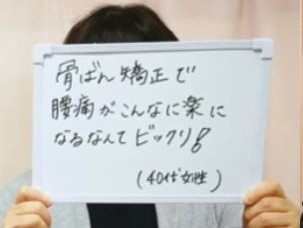 骨ばん矯正で
腰痛がこんなに楽に
なるなんてビックリ!
(40代女性)